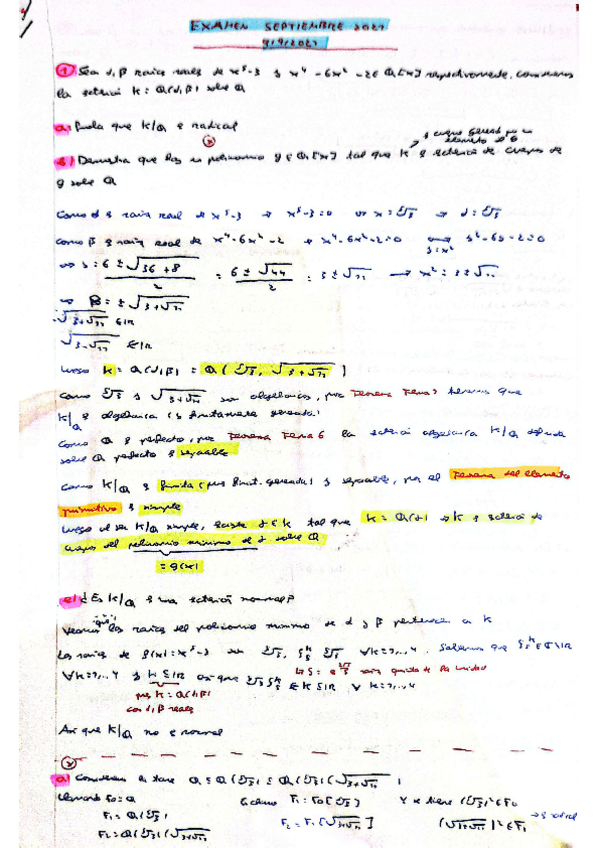 EXAMEN SEPTIEMBRE 2021
9/9/2021
① Sean α, β raíces reales de x⁵-3 y x⁴-6x²-2 ∈ Q[x] respectivamente, consideremos
la extensión K = Q(α,β) sobre Q
a) Prueba que K/Q es radical
b) Demuestra que hay un polinomio g ∈ Q[x] tal que K es extensión de cuerpos de
g sobre Q
Como α es raíz real de x⁵-3 → x⁵-3=0 ⇔ x=⁵√3 → α=⁵√3
Como β es raíz real de x⁴-6x²-2 → x⁴-6x²-2=0 s²-6s-2=0
s=x²
⇒ s = 6±√36+8 / 2 = 6±√44 / 2 = 3±√11 → x² = 3±√11
⇒ β = ±√3+√11
√3+√11 ∈ R
√3-√11 ∉ R
Luego K = Q(α,β) = Q(⁵√3, √3+√11)
Como ⁵√3 y √3+√11 son algebraicos, por Teorema Tema 3 tenemos que
K/Q es algebraica (y finitamente generada)
Como Q es perfecto, por Teorema Tema 6 la extensión algebraica K/Q
sobre Q perfecto es separable
Como K/Q es finita (pues finit. generada) y separable, por el Teorema del elemento
primitivo es simple
Luego al ser K/Q simple, existe γ ∈ K tal que K = Q(γ) → K es extensión de
cuerpos del polinomio mínimo de γ sobre Q
= g(x)
c) ¿Es K/Q una extensión normal?
Veamos si las raíces del polinomio mínimo de α y β pertenecen a K
Las raíces de f(x) = x⁵-3 son ⁵√3, ⁵√3 ∀k=1,..,4. Sabemos que ∈ C\R
∀k=1,..,4 y K ⊆ R así que ∉ K ⊆ R ∀ k=1,..,4
raíz quinta de la unidad
pues K = Q(α,β)
con α, β reales
Así que K/Q no es normal
a) Consideremos la torre Q ⊆ Q(⁵√3) ⊆ Q(⁵√3)(√3+√11)
Llamando F₀ = Q
F₁ = Q(⁵√3)
F₂ = Q(⁵√3)(√3+√11)
F₁ = F₀[⁵√3]
F₂ = F₁[√3+√11]
Y se tiene (⁵√3) ∈ F₀
(√3+√11)² ∈ F₁ → es radical